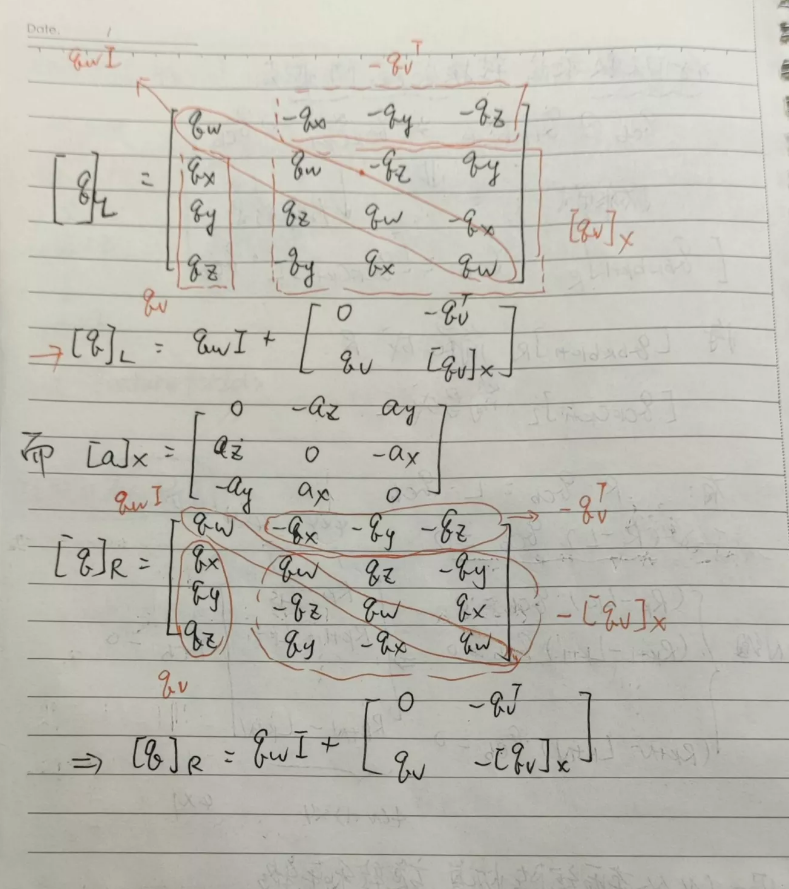 Date. /
q_w I -q_v^T
[q]_L = [ q_w -q_x -q_y -q_z
q_x q_w -q_z q_y
q_y q_z q_w -q_x
q_z -q_y q_x q_w ] [q_v]_×
q_v
→ [q]_L = q_w I + [ 0 -q_v^T
q_v [q_v]_× ]
而 [a]_× = [ 0 -a_z a_y
a_z 0 -a_x
-a_y a_x 0 ]
q_w I
[q]_R = [ q_w -q_x -q_y -q_z → -q_v^T
q_x q_w q_z -q_y
q_y -q_z q_w q_x
q_z q_y -q_x q_w ] -[q_v]_×
q_v
⇒ [q]_R = q_w I + [ 0 -q_v^T
q_v -[q_v]_× ]